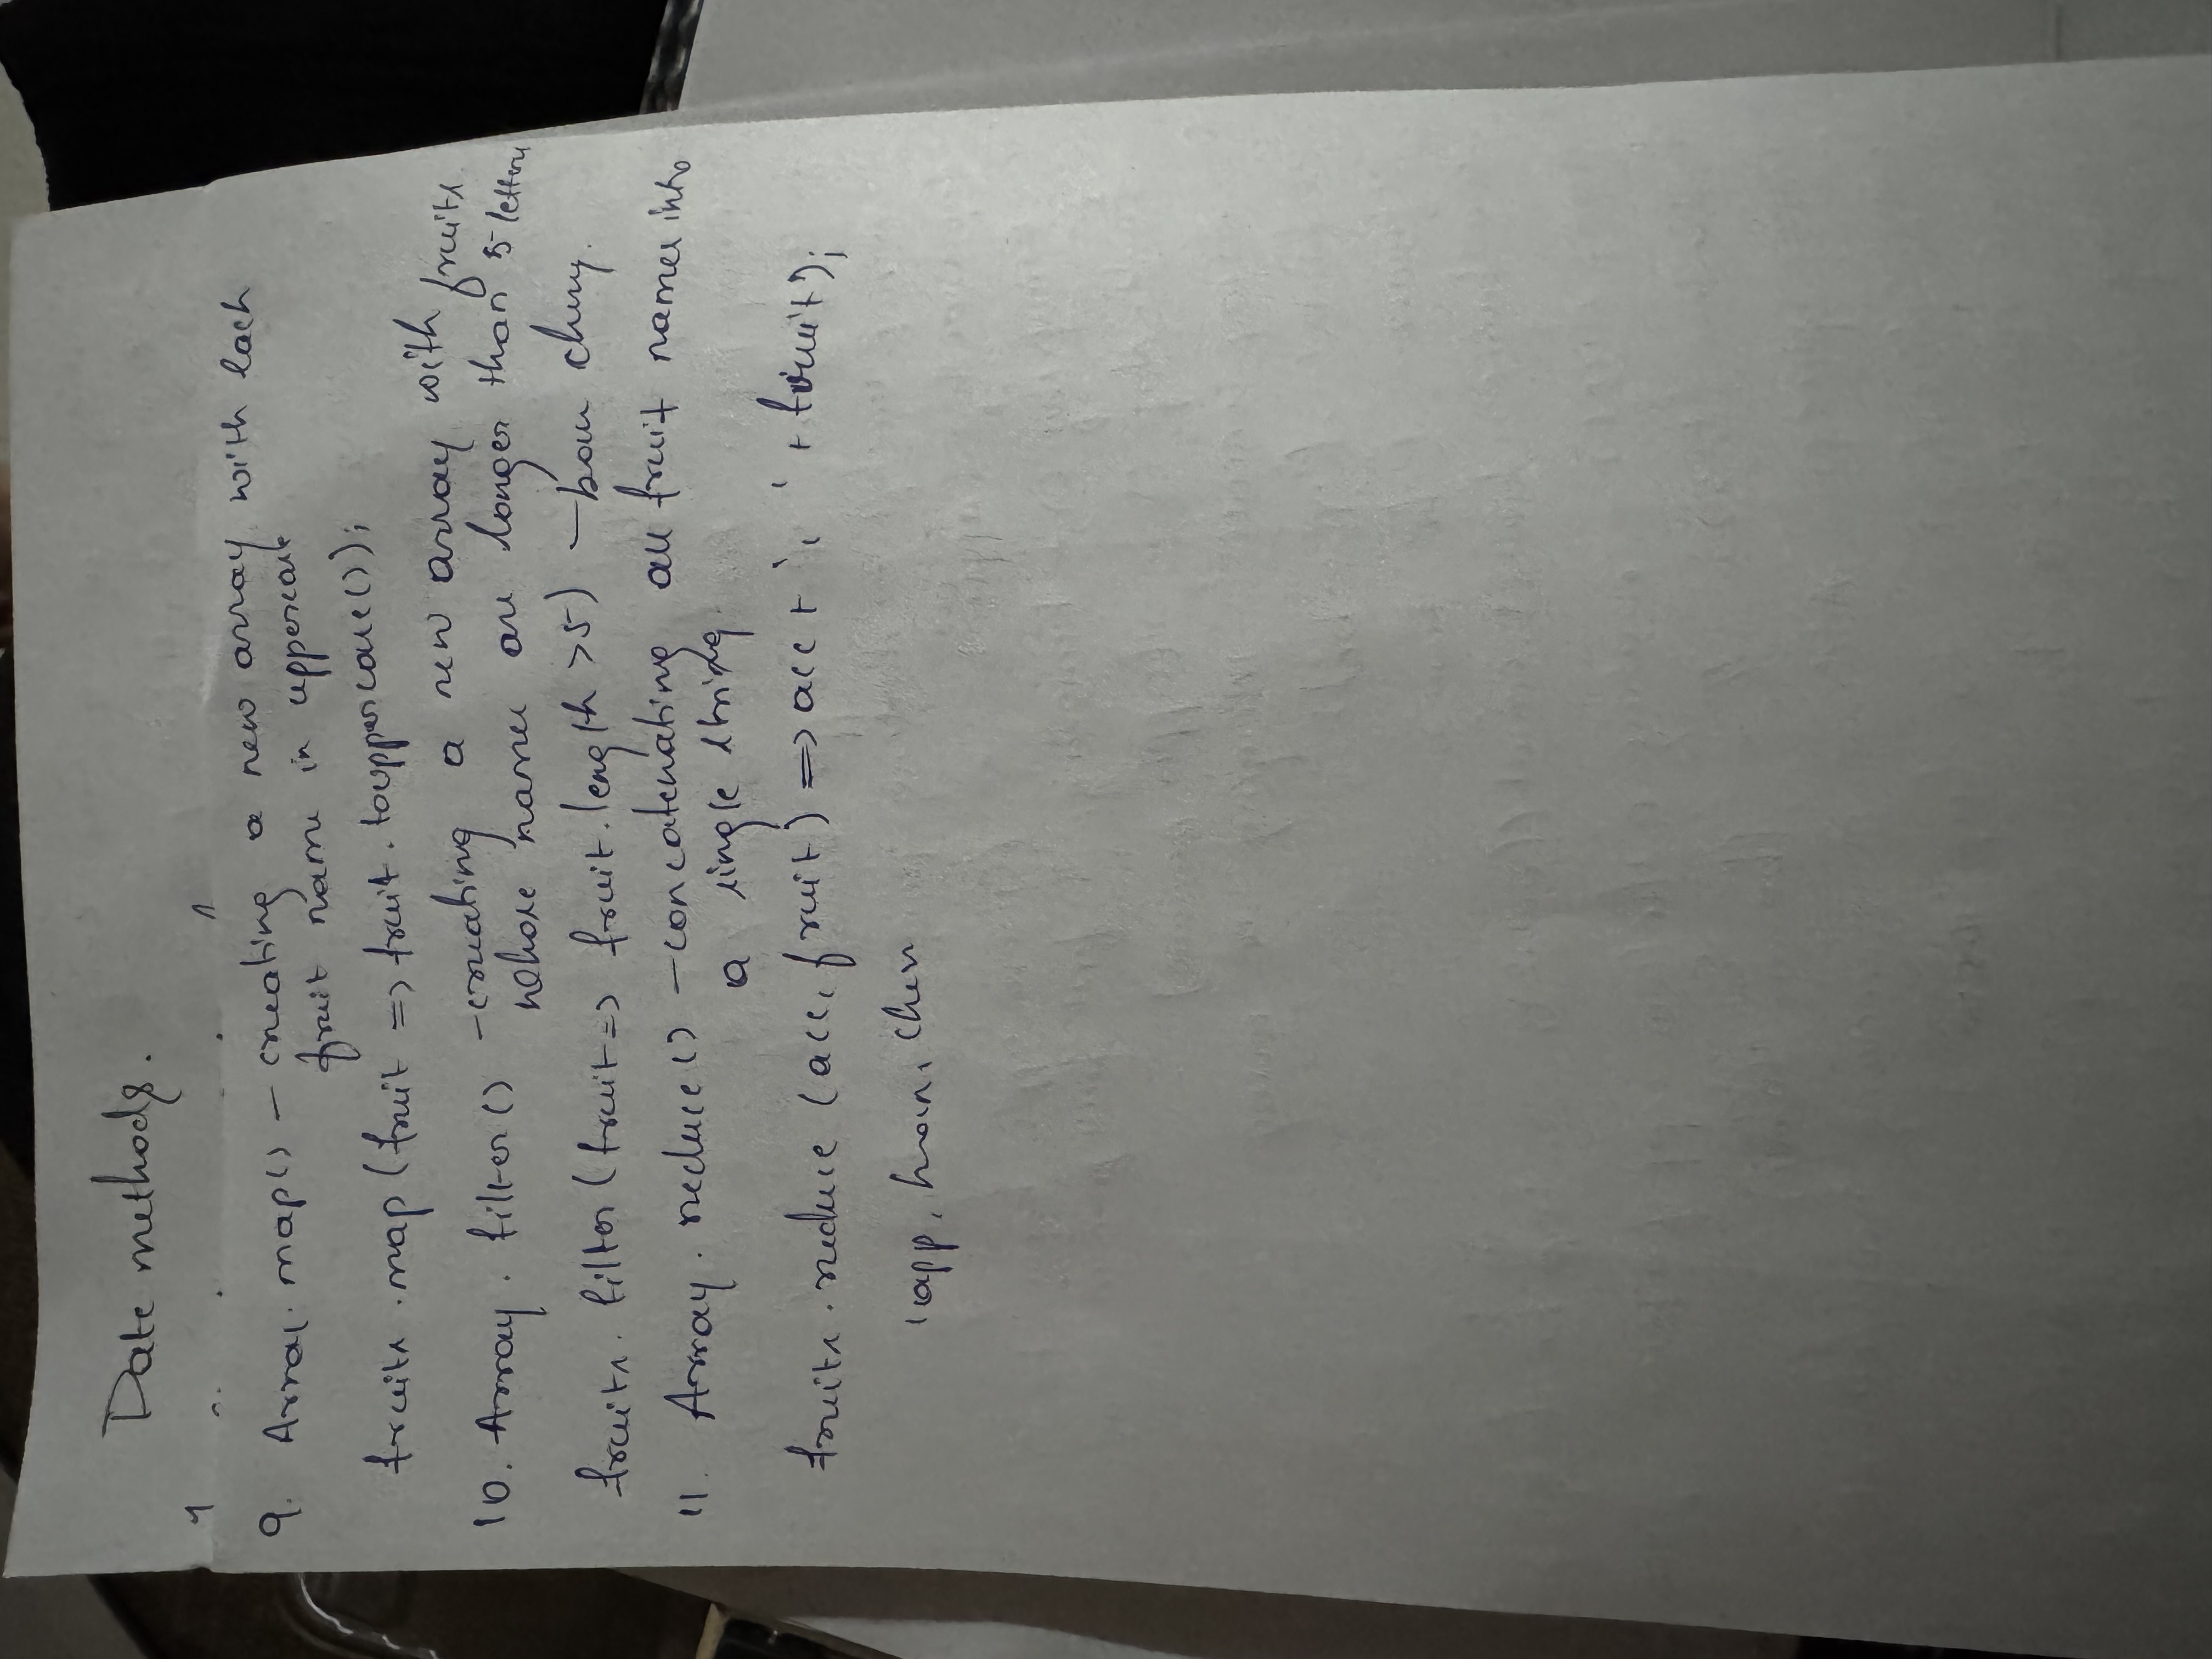 Date methods.
9. Array. map() - creating a new array with each
fruit name in uppercase
fruits .map (fruit => fruit. touppercase());
10. Array. filter() - creating a new array with fruits
whose names are longer than 5 letters
fruits. filter (fruit => fruit.length >5) - ban cherry.
11. Array. reduce() - concatenating all fruit names into
a single string.
fruits .reduce (acc, fruit) => acc + ', ' + fruit);
'app, ban, cherr